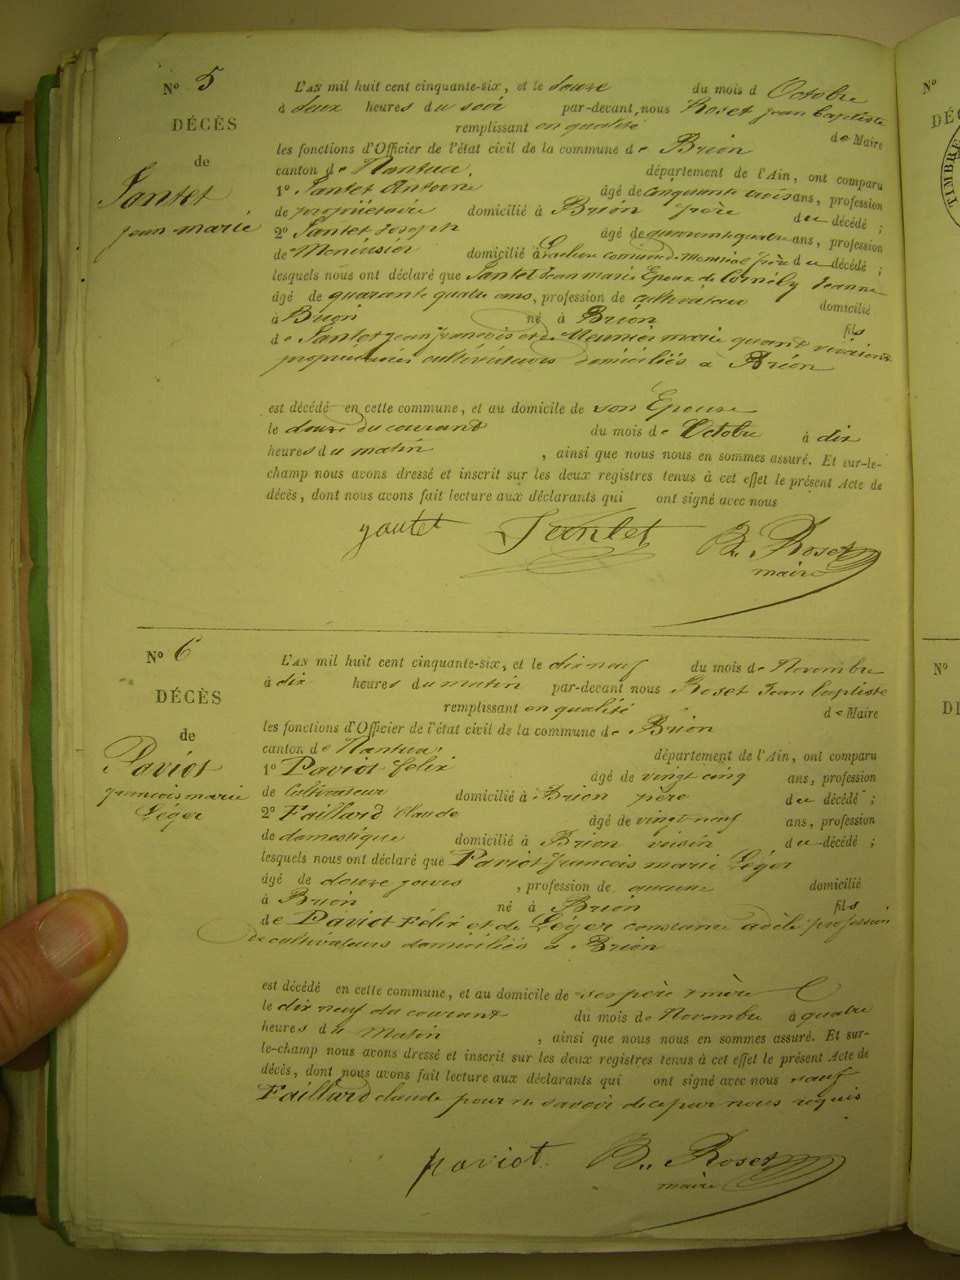 N° 5
DÉCÈS
de
Jantet
jean marie
L'AN mil huit cent cinquante-six, et le douze du mois d Octobre
à deux heures du soir par-devant nous Roset jean baptiste
remplissant en qualité de Maire
les fonctions d'Officier de l'état civil de la commune de Brion
canton de Nantua, département de l'Ain, ont comparu
1° Jantet Antoine âgé de cinquante trois ans, profession
de propriétaire domicilié à Brion frère du décédé ;
2° Jantet Joseph âgé de quarante quatre ans, profession
de domicilié à commune de frère du décédé ;
lesquels nous ont déclaré que Jantet Jean marie Epoux de Cornély Jeanne
âgé de quarante quatre ans, profession de cultivateur domicilié
à Brion né à Brion fils
de Jantet jean françois et de Meunier marie quand vivaient
propriétaires cultivateurs domiciliés à Brion
est décédé en cette commune, et au domicile de son Epouse
le douze du courant du mois de Octobre à dix
heures du matin , ainsi que nous nous en sommes assuré. Et sur-le-
champ nous avons dressé et inscrit sur les deux registres tenus à cet effet le présent Acte de
décès, dont nous avons fait lecture aux déclarants qui ont signé avec nous
Jantet B. Roset
maire
N° 6
DÉCÈS
de
Paviot
francois marie
Léger
L'AN mil huit cent cinquante-six, et le dix neuf du mois de Novembre
à dix heures du matin par-devant nous Roset Jean baptiste
remplissant en qualité de Maire
les fonctions d'Officier de l'état civil de la commune de Brion
canton de Nantua, département de l'Ain, ont comparu
1° Paviot felix âgé de vingt cinq ans, profession
de Cultivateur domicilié à Brion père du décédé ;
2° Faillard Claude âgé de vingt neuf ans, profession
de domestique domicilié à Brion voisin du décédé ;
lesquels nous ont déclaré que Paviot francois marie Léger
âgé de douze jours , profession de aucune domicilié
à Brion né à Brion fils
de Paviot Félix et de Léger constance adèle profession
de cultivateurs domiciliés à Brion
est décédé en cette commune, et au domicile de ses père & mère
le dix neuf du courant du mois de Novembre à quatre
heures du Matin , ainsi que nous nous en sommes assuré. Et sur-
le-champ nous avons dressé et inscrit sur les deux registres tenus à cet effet le présent Acte de
décès, dont nous avons fait lecture aux déclarants qui ont signé avec nous sauf
Faillard claude pour ne savoir de ce par nous requis
paviot B. Roset
maire
N°
DÉC
TIMBRE
N°
DÉ